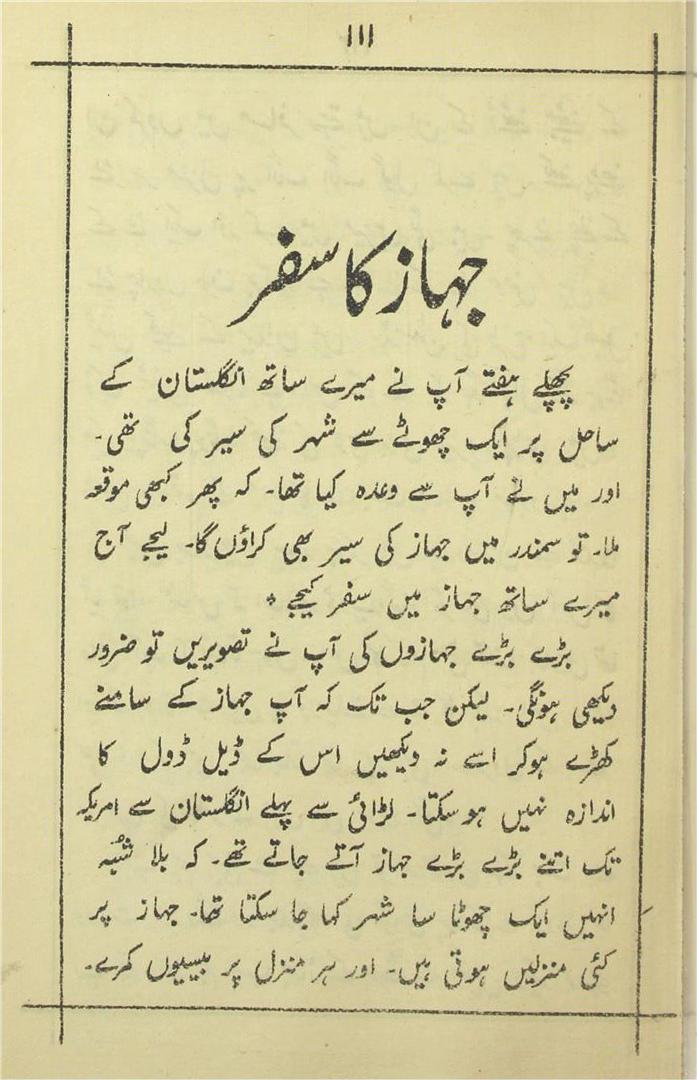 ۱۱۱
جہاز کا سفر
پچھلے ہفتے آپ نے میرے ساتھ انگلستان کے
ساحل پر ایک چھوٹے سے شہر کی سیر کی تھی۔
اور میں نے آپ سے وعدہ کیا تھا۔ کہ پھر کبھی موقعہ
ملا۔ تو سمندر میں جہاز کی سیر بھی کراؤں گا۔ لیجے آج
میرے ساتھ جہاز میں سفر کیجے *
بڑے بڑے جہازوں کی آپ نے تصویریں تو ضرور
دیکھی ہونگی۔ لیکن جب تک کہ آپ جہاز کے سامنے
کھڑے ہوکر اسے نہ دیکھیں اس کے ڈیل ڈول کا
اندازہ نہیں ہوسکتا۔ لڑائی سے پہلے انگلستان سے امریکہ
تک اتنے بڑے بڑے جہاز آتے جاتے تھے۔ کہ بلا شُبہ
انہیں ایک چھوٹا سا شہر کہا جا سکتا تھا۔ جہاز پر
کئی منزلیں ہوتی ہیں۔ اور ہر منزل پر بیسیوں کمرے۔